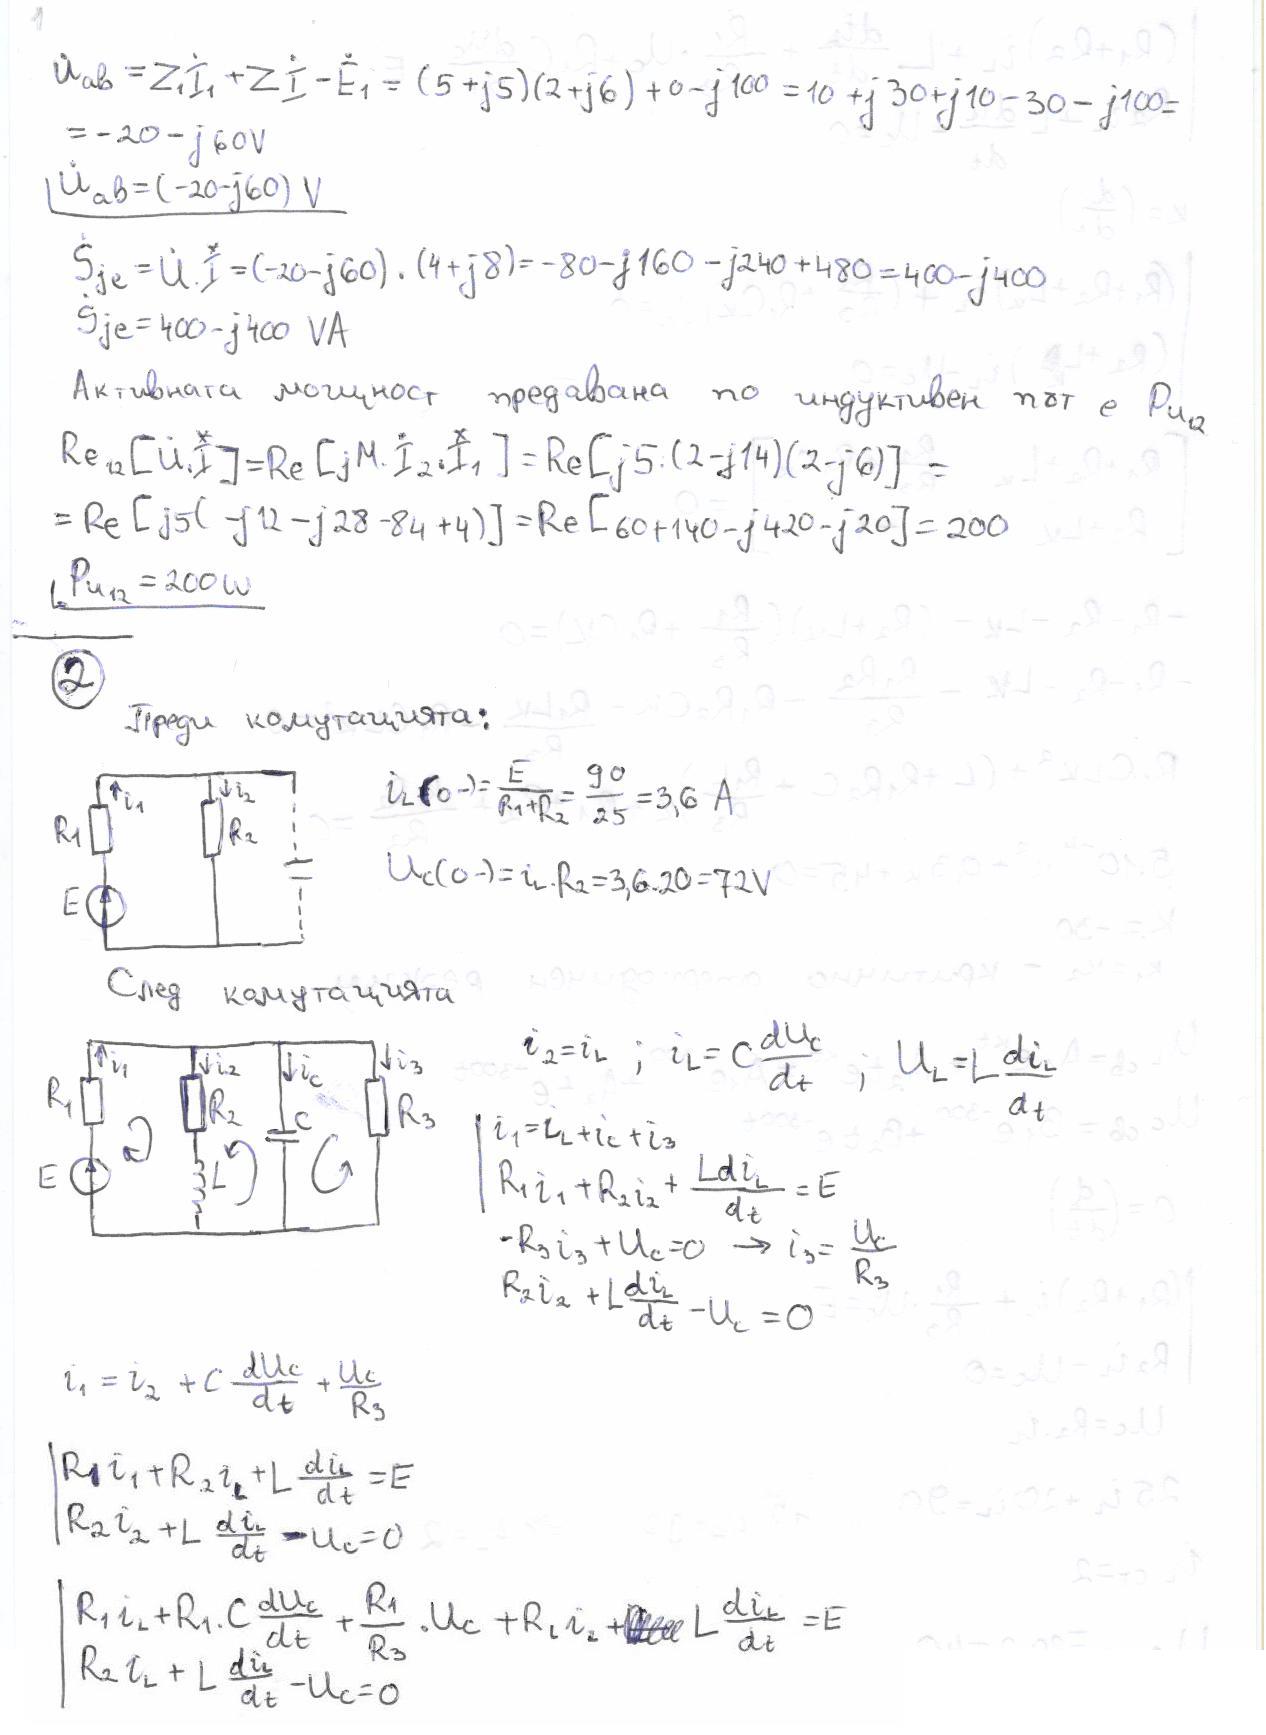 1
U̇ab = Z₁İ₁ + Zİ - Ė₁ = (5+j5)(2+j6)+0-j100 = 10+j30+j10-30-j100=
= -20-j60V
U̇ab=(-20-j60) V
Ṡje = U̇.I* = (-20-j60).(4+j8)=-80-j160-j240+480=400-j400
Ṡje=400-j400 VA
Активната мощност предавана по индуктивен път е Pu₁₂
Re₁₂[U̇.I*]=Re[jM.İ₂.I*₁]=Re[j5.(2-j14)(2-j6)] =
= Re[j5(-j12-j28-84+4)]=Re[60+140-j420-j20]=200
Pu₁₂=200W
2
Преди комутацията:
i₁ i₂ R₁ R₂ E
iL(0-)= E/(R₁+R₂) = 90/25 = 3,6 A
Uc(0-)=iL.R₂=3,6.20=72V
След комутацията
i₁ i₂ ic i₃ R₁ R₂ C R₃ E L
i₂=iL ; iL=C dUc/dt ; UL=L diL/dt
i₁=iL+ic+i₃
R₁i₁+R₂i₂+ LdiL/dt = E
-R₃i₃+Uc=0 → i₃= Uc/R₃
R₂i₂+L diL/dt -Uc=0
i₁ = i₂ + C dUc/dt + Uc/R₃
R₁i₁+R₂iL+L diL/dt =E
R₂i₂+L diL/dt -Uc=0
R₁iL+R₁.C dUc/dt + R₁/R₃ .Uc +R₂iL+ L diL/dt =E
R₂iL+L diL/dt -Uc=0